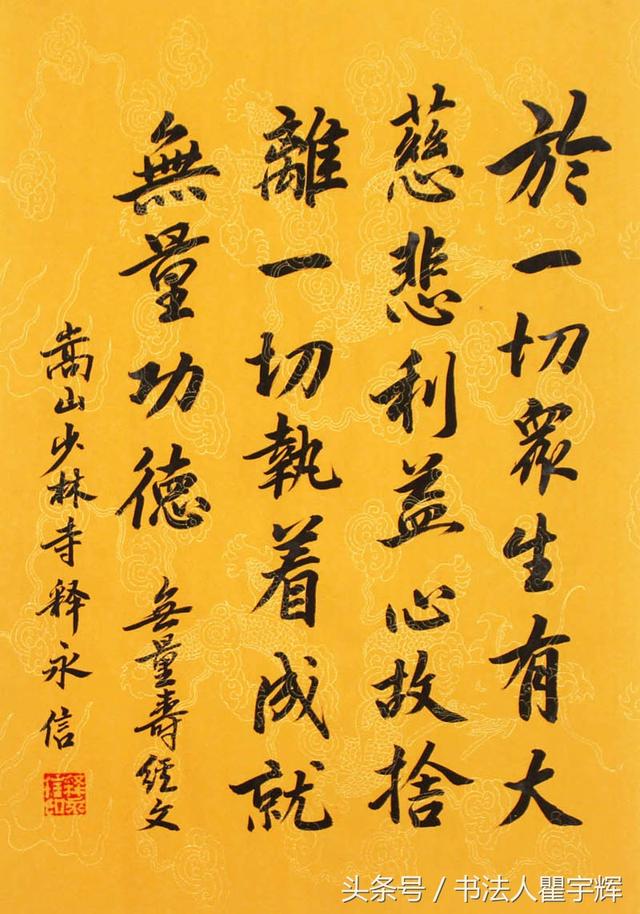 於一切眾生有大
慈悲利益心故捨
離一切執着成就
無量功德 無量壽經文
嵩山少林寺释永信
头条号 / 书法人瞿宇辉